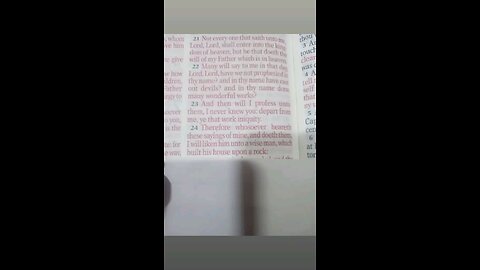 21 Not every one that saith unto me
Lord, Lord, shall enter into the king
dom of heaven; but he that doeth the
will of my Father which is in heaven.
22 Many will say to me in that day
Lord, Lord, have we not prophesied in
thy name? and in thy name have cast
out devils? and in thy name done
many wonderful works?
23 And then will I profess unto
them, I never knew you: depart from
me, ye that work iniquity.
24 Therefore whosoever heareth
these sayings of mine, and doeth them,
I will liken him unto a wise man, which
built his house upon a rock:
whom
give
how
Father
you,
is the
for
thou
touch
clean
was
4
5
6